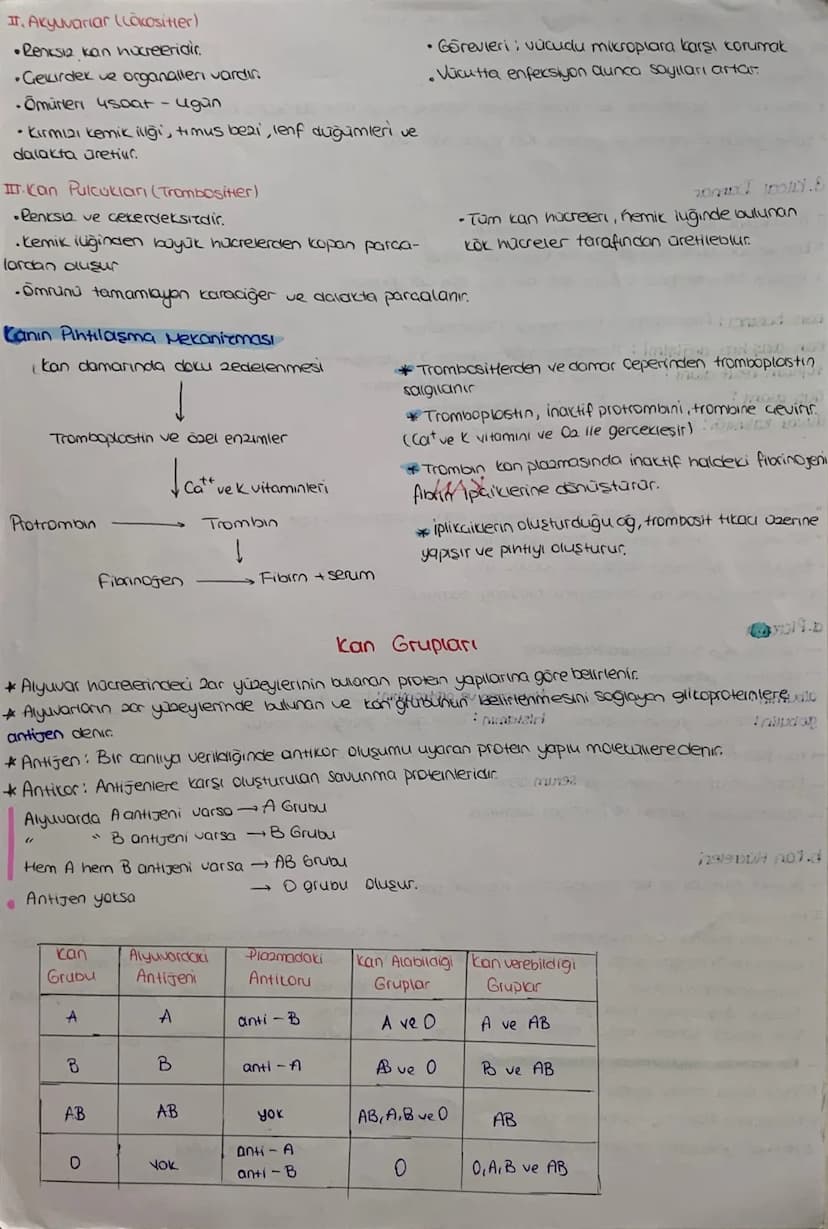 II. Akyuvarlar (Lökositler)
• Renksiz kan hücreleridir.
• Çekirdek ve organelleri vardır.
• Ömürleri 4saat - 4gün
• Kırmızı kemik iliği, timus bezi, lenf düğümleri ve
dalakta üretilir.
• Görevleri; vücudu mikroplara karşı korumak
• Vücutta enfeksiyon olunca sayıları artar.
III. Kan Pulcukları (Trombositler)
• Renksiz ve çekirdeksizdir.
• Kemik iliğinden büyük hücrelerden kopan parça-
lardan oluşur
• Ömrünü tamamlayan karaciğer ve dalakta parçalanır.
• Tüm kan hücreleri, kemik iliğinde bulunan
kök hücreler tarafından üretilebilir.
Kanın Pıhtılaşma Mekanizması
Kan damarında doku zedelenmesi
Tromboplastin ve özel enzimler
Ca++ ve K vitaminleri
Protrombin → Trombin
Fibrinojen → Fibirn + serum
* Trombositlerden ve damar çeperinden tromboplastin
salgılanır
* Tromboplastin, inaktif protrombini, trombine çevirir.
(Ca+ ve K vitamini ve O2 ile gerçekleşir)
* Trombin kan plazmasında inaktif haldeki fibrinojeni
fibrin ipçiklerine dönüştürür.
* İplikçiklerin oluşturduğu ağ, trombosit tıkacı üzerine
yapışır ve pıhtıyı oluşturur.
Kan Grupları
* Alyuvar hücrelerindeki zar yüzeylerinin bulunan protein yapılarına göre belirlenir.
* Alyuvarların zar yüzeylerinde bulunan ve kan grubunun belirlenmesini sağlayan glikoproteinlere
antijen denir.
* Antijen: Bir canlıya verildiğinde antikor oluşumu uyaran protein yapılı moleküllere denir.
* Antikor: Antijenlere karşı oluşturulan savunma proteinleridir.
Alyuvarda A antijeni varsa → A Grubu
" " B antijeni varsa → B Grubu
Hem A hem B antijeni varsa → AB Grubu
• Antijen yoksa → O grubu oluşur.
Kan Grubu | Alyuvardaki Antijeni | Plazmadaki Antikoru | Kan Alabildiği Gruplar | Kan verebildiği Gruplar
A | A | anti - B | A ve O | A ve AB
B | B | anti - A | B ve O | B ve AB
AB | AB | yok | AB, A, B ve O | AB
O | YOK | anti - A anti - B | O | O, A, B ve AB